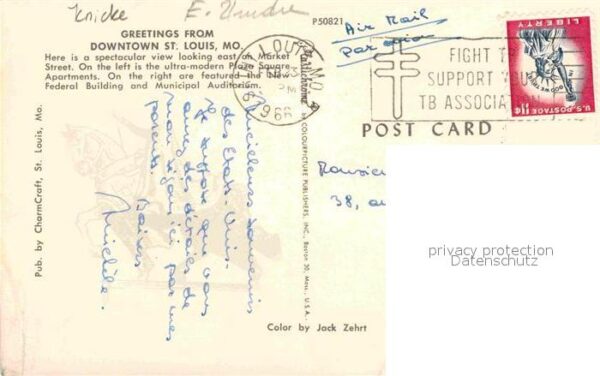 Knicke
E. Vendre
P50821
Air Mail
Par avion
GREETINGS FROM
DOWNTOWN ST. LOUIS, MO.
Here is a spectacular view looking east on Market
Street. On the left is the ultra-modern Plaza Square
Apartments. On the right are featured the
Federal Building and Municipal Auditorium.
ST. LOUIS, MO.
PM
1966
FIGHT TB
SUPPORT YOUR
TB ASSOCIA
LIBERTY
U.S. POSTAGE 11¢
POST CARD
Meilleurs souvenirs
des Etats-Unis.
Je suppose que vous
aurez des détails de
mon séjour ici par mes
parents.
Baisers
Michèle.
38, a
Pub. by CharmCraft, St. Louis, Mo.
Plastichrome ® by COLOURPICTURE PUBLISHERS, INC., Boston 30, Mass., U.S.A.
Color by Jack Zehrt
privacy protection
Datenschutz